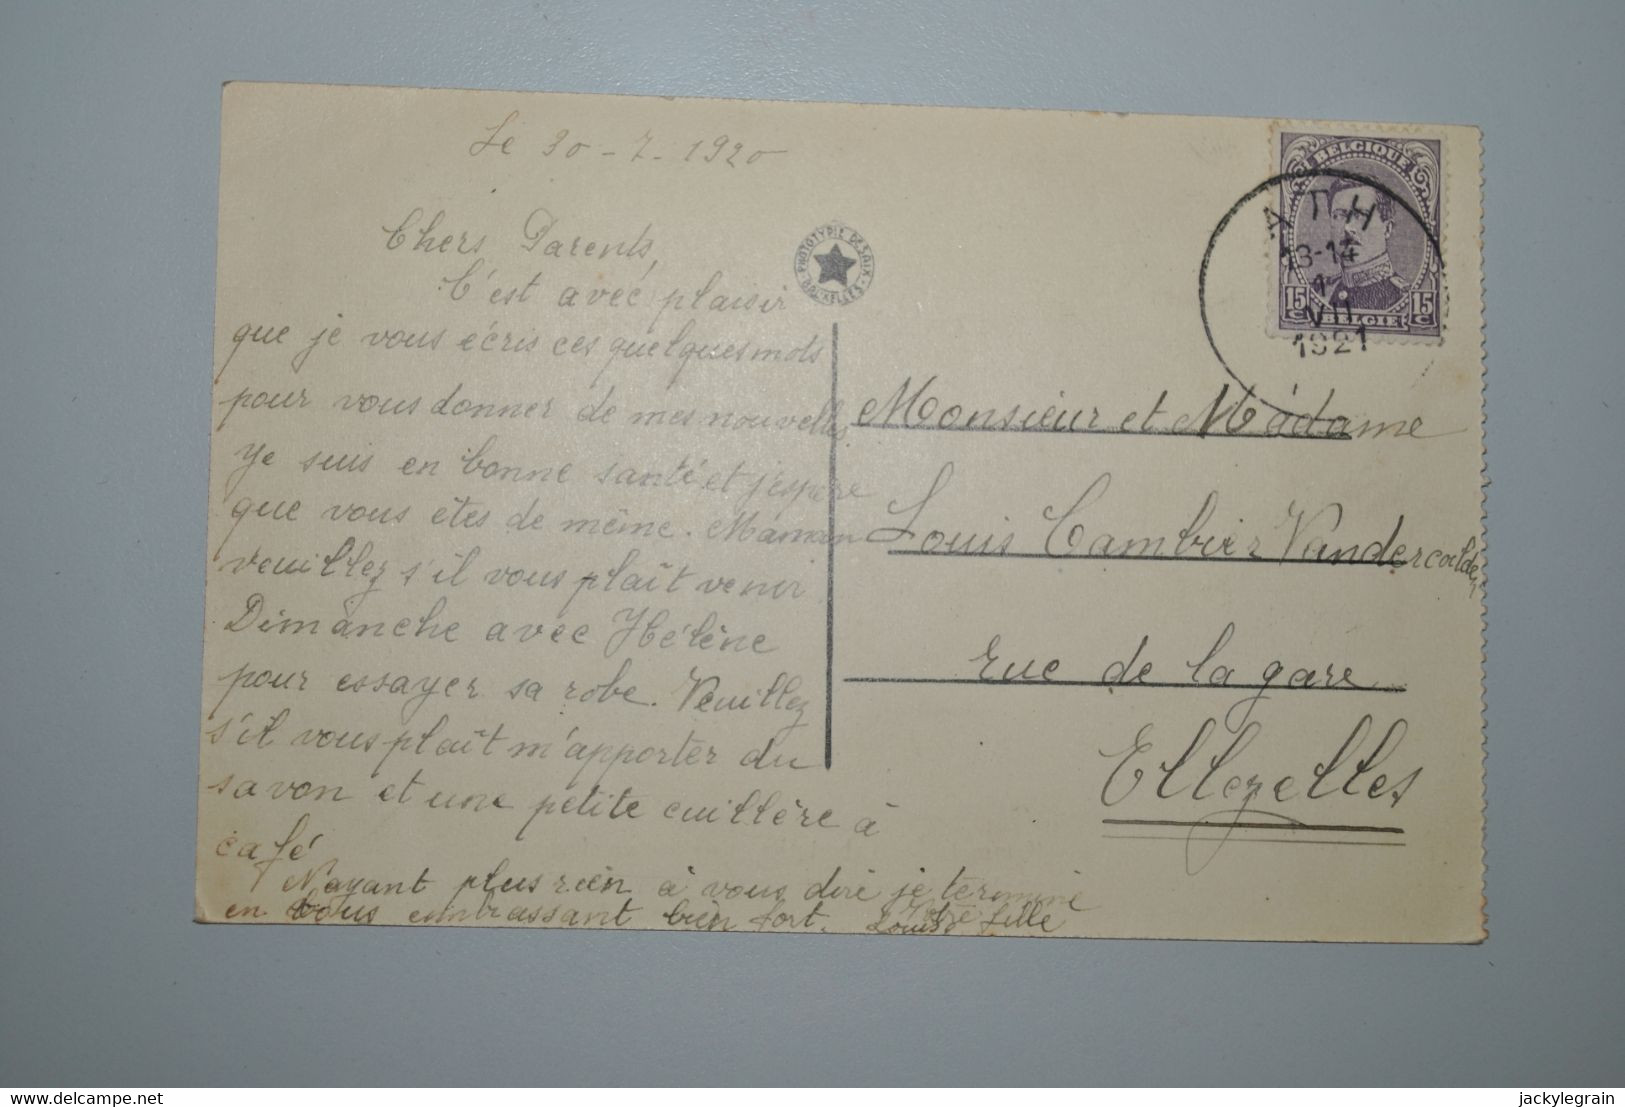 Le 30-7-1920
Chers Parents,
C'est avec plaisir
que je vous écris ces quelques mots
pour vous donner de mes nouvelles.
Je suis en bonne santé et j'espère
que vous êtes de même. Maman
veuillez s'il vous plaît venir
Dimanche avec Hélène
pour essayer sa robe. Veuillez
s'il vous plaît m'apporter du
savon et une petite cuillère à
café
N'ayant plus rien à vous dire je termine
en vous embrassant bien fort. Votre fille
Louise
PHOTOTYPIE DESAIX
BRUXELLES
BELGIQUE
15 C 15 C
BELGIE
ATH
13-14
1
VII
1921
Monsieur et Madame
Louis Cambier Vandercoilden
rue de la gare
Ellezelles
delcampe.net
jackylegrain